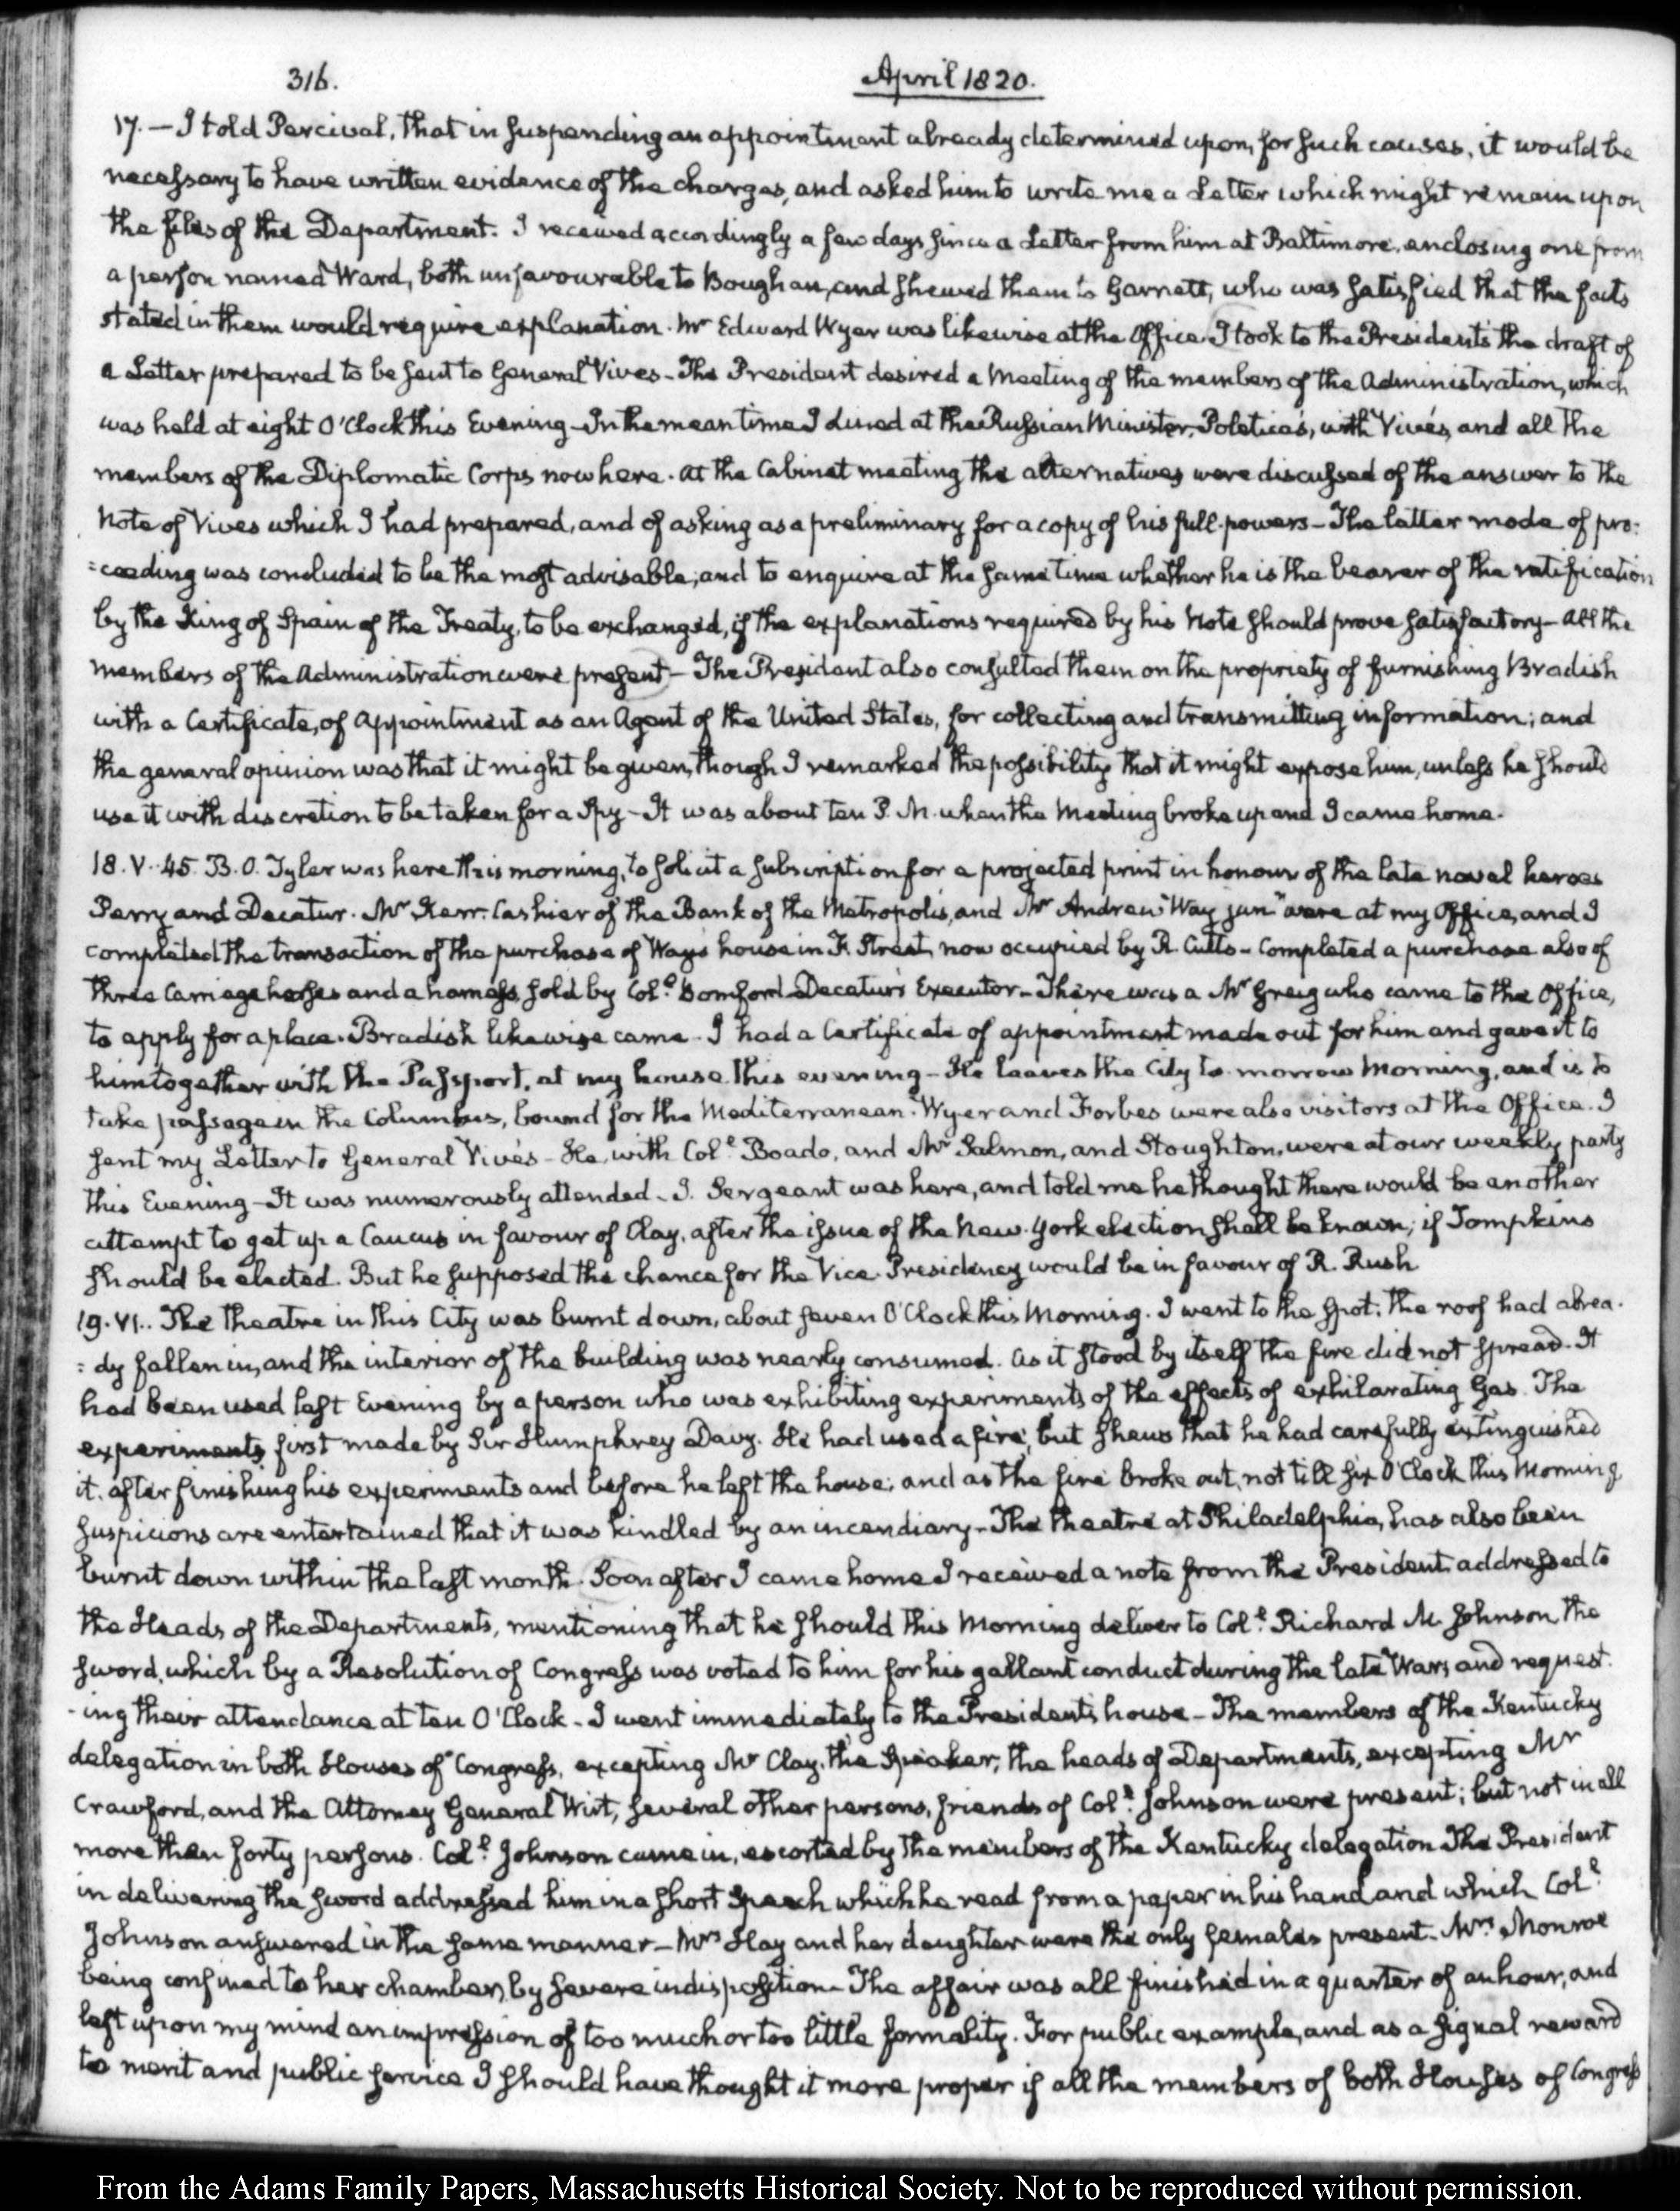 316. April 1820.
17. — I told Percival, that in suspending an appointment already determined upon, for such causes, it would be
necessary to have written evidence of the charges, and asked him to write me a Letter which might remain upon
the files of the Department. I received accordingly a few days since a Letter from him at Baltimore, enclosing one from
a person named Ward, both unfavourable to Boughan, and shewed them to Garnett, who was satisfied that the facts
stated in them would require explanation. Mr Edward Wyer was likewise at the Office. I took to the President's the draft of
a Letter prepared to be sent to General Vives — The President desired a Meeting of the members of the Administration, which
was held at eight O'Clock this Evening — In the mean time I dined at the Russian Minister, Poletica's, with Vivés, and all the
members of the Diplomatic Corps now here. At the Cabinet meeting the alternatives were discussed of the answer to the
Note of Vives which I had prepared, and of asking as a preliminary for a copy of his full-powers — The latter mode of pro:
:ceeding was concluded to be the most advisable; and to enquire at the same time whether he is the bearer of the ratification
by the King of Spain of the Treaty, to be exchanged, if the explanations required by his Note should prove satisfactory — All the
members of the Administration were present — The President also consulted them on the propriety of furnishing Bradish
with a Certificate, of Appointment as an Agent of the United States, for collecting and transmitting information; and
the general opinion was that it might be given, though I remarked the possibility that it might expose him, unless he should
use it with discretion to be taken for a Spy — It was about ten P. M. when the Meeting broke up and I came home.
18. V. 45. B. O. Tyler was here this morning, to solicit a subscription for a projected print in honour of the late naval heroes
Perry and Decatur. Mr Kerr, Cashier of the Bank of the Metropolis, and Mr Andrew Way junr were at my Office, and I
completed the transaction of the purchase of Way's house in F. Street, now occupied by R. Cutts — Completed a purchase also of
three Carriage horses and a harness, sold by Coll. Bomford Decatur's Executor — There was a Mr Greig who came to the Office,
to apply for a place. Bradish likewise came. I had a Certificate of appointment made out for him and gave it to
him together with the Passport, at my house this evening — He leaves the City to-morrow Morning, and is to
take passage in the Columbus, bound for the Mediterranean. Wyer and Forbes were also visitors at the Office. I
sent my Letter to General Vivés — He, with Coll. Boado, and Mr Salmon, and Stoughton, were at our weekly party
this Evening — It was numerously attended — J. Sergeant was here, and told me he thought there would be another
attempt to get up a Caucus in favour of Clay, after the issue of the New-York election shall be known; if Tompkins
should be elected. But he supposed the chance for the Vice-Presidency would be in favour of R. Rush
19. VI.. The theatre in this City was burnt down, about seven O'Clock this Morning. I went to the spot: the roof had alrea-
:dy fallen in, and the interior of the building was nearly consumed. As it stood by itself the fire did not spread. It
had been used last Evening by a person who was exhibiting experiments of the effects of exhilarating Gas. The
experiments first made by Sir Humphrey Davy. He had used a fire, but shews that he had carefully extinguished
it, after finishing his experiments and before he left the house; and as the fire broke out, not till six O'Clock this Morning
suspicions are entertained that it was kindled by an incendiary — The theatre at Philadelphia, has also been
burnt down within the last month. Soon after I came home I received a note from the President addressed to
the Heads of the Departments, mentioning that he should this Morning deliver to Coll. Richard M. Johnson the
sword, which by a Resolution of Congress was voted to him for his gallant conduct during the late War; and request-
-ing their attendance at ten O'Clock — I went immediately to the President's house — The members of the Kentucky
delegation in both Houses of Congress, excepting Mr Clay, the Speaker; the heads of Departments, excepting Mr
Crawford, and the Attorney General Wirt, several other persons, friends of Coll. Johnson were present; but not in all
more than forty persons. Coll. Johnson came in, escorted by the members of the Kentucky delegation. The President
in delivering the sword addressed him in a short speech which he read from a paper in his hand and which Coll.
Johnson answered in the same manner — Mrs Hay and her daughter were the only females present. Mrs Monroe
being confined to her chamber, by severe indisposition — The affair was all finished in a quarter of an hour, and
left upon my mind an impression of too much or too little formality. For public example, and as a signal reward
to merit and public service I should have thought it more proper if all the members of both Houses of Congress
From the Adams Family Papers, Massachusetts Historical Society. Not to be reproduced without permission.